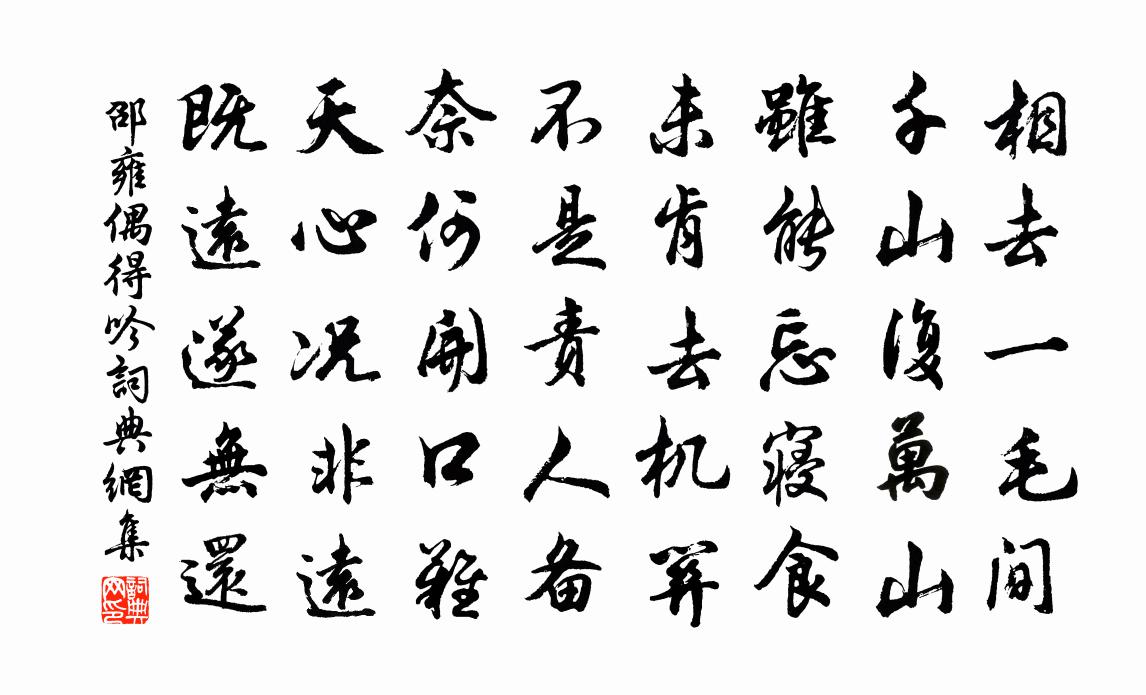 相去一毛間
千山復萬山
雖能忘寢食
未肯去机關
不是責人备
奈何開口難
天心况非遠
既遠遂無還
邵雍偶得吟詞典網集
詞典网印